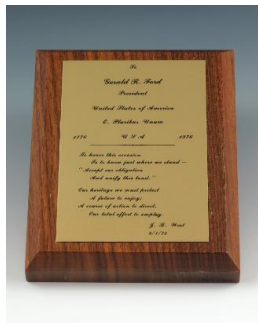 To
Gerald R. Ford
President
United States of America
E. Pluribus Unum
1776 U S A 1976
To honor this occasion
Is to know just where we stand —
"Accept our obligation
And unify this land."
Our heritage we must protect
A future to enjoy;
A course of action to direct,
Our total effort to employ.
J. B. West